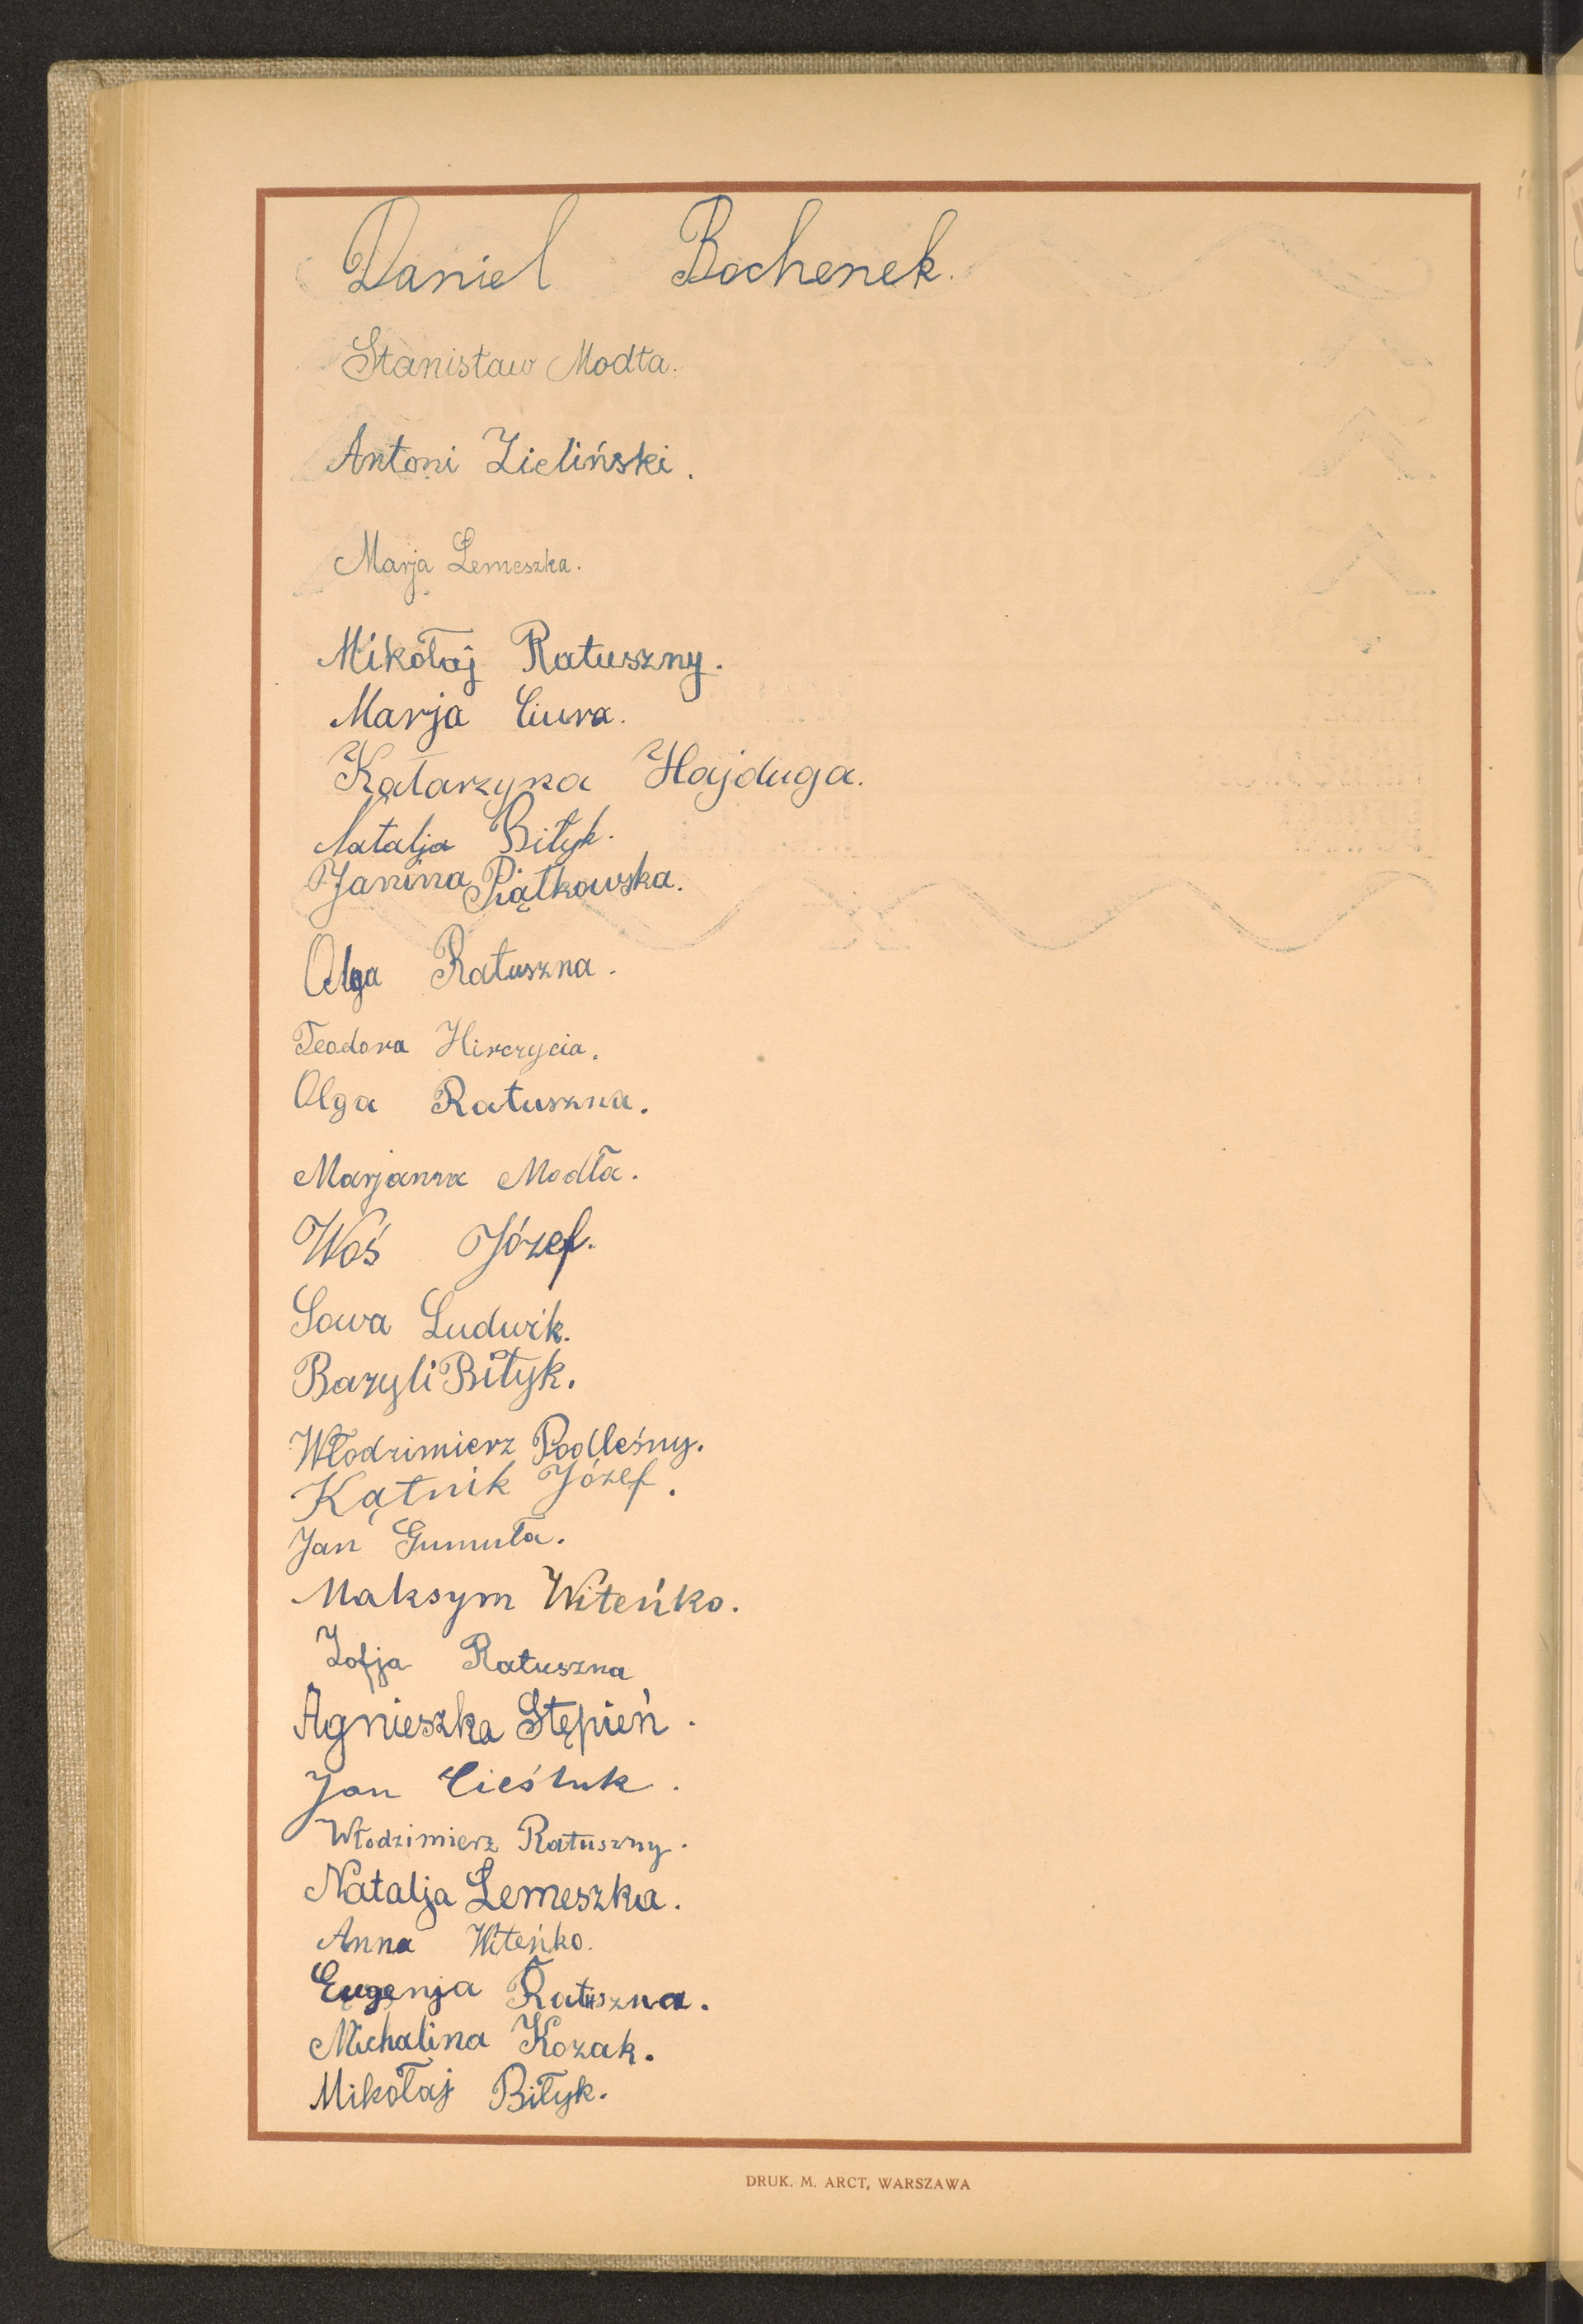 Daniel Bochenek.
Stanisław Modła.
Antoni Zieliński.
Marja Lemeszka.
Mikołaj Ratuszny.
Marja Ciura.
Katarzyna Hajduga.
Natalja Biłyk.
Janina Piątkowska.
Olga Ratuszna.
Teodora Hirczycia.
Olga Ratuszna.
Marjanna Modła.
Woś Józef.
Sowa Ludwik.
Bazyli Biłyk.
Włodzimierz Podleśny.
Kątnik Józef.
Jan Gumuła.
Maksym Witeńko.
Zofja Ratuszna
Agnieszka Stępień.
Jan Cieśluk.
Włodzimierz Ratuszny.
Natalja Lemeszka.
Anna Witeńko.
Eugenja Ratuszna.
Michalina Kozak.
Mikołaj Biłyk.
DRUK. M. ARCT, WARSZAWA